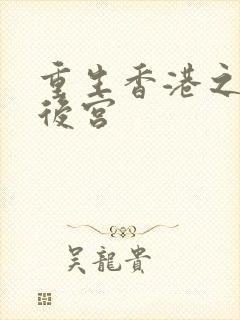 重生香港之
後宮
吴龍貴